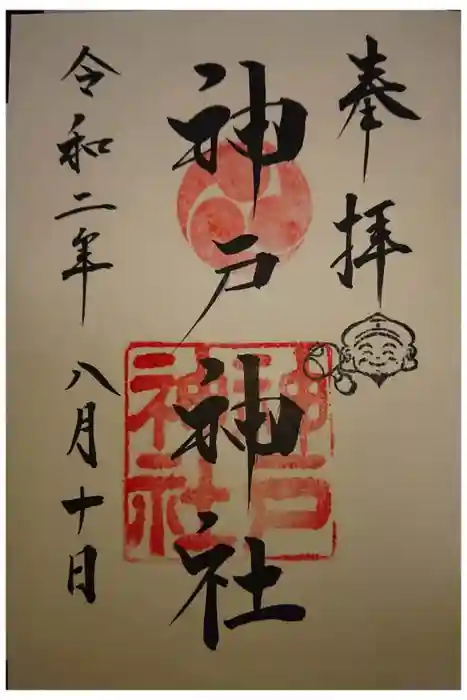 奉拝
神戸神社
神戸
神社
令和二年 八月十日